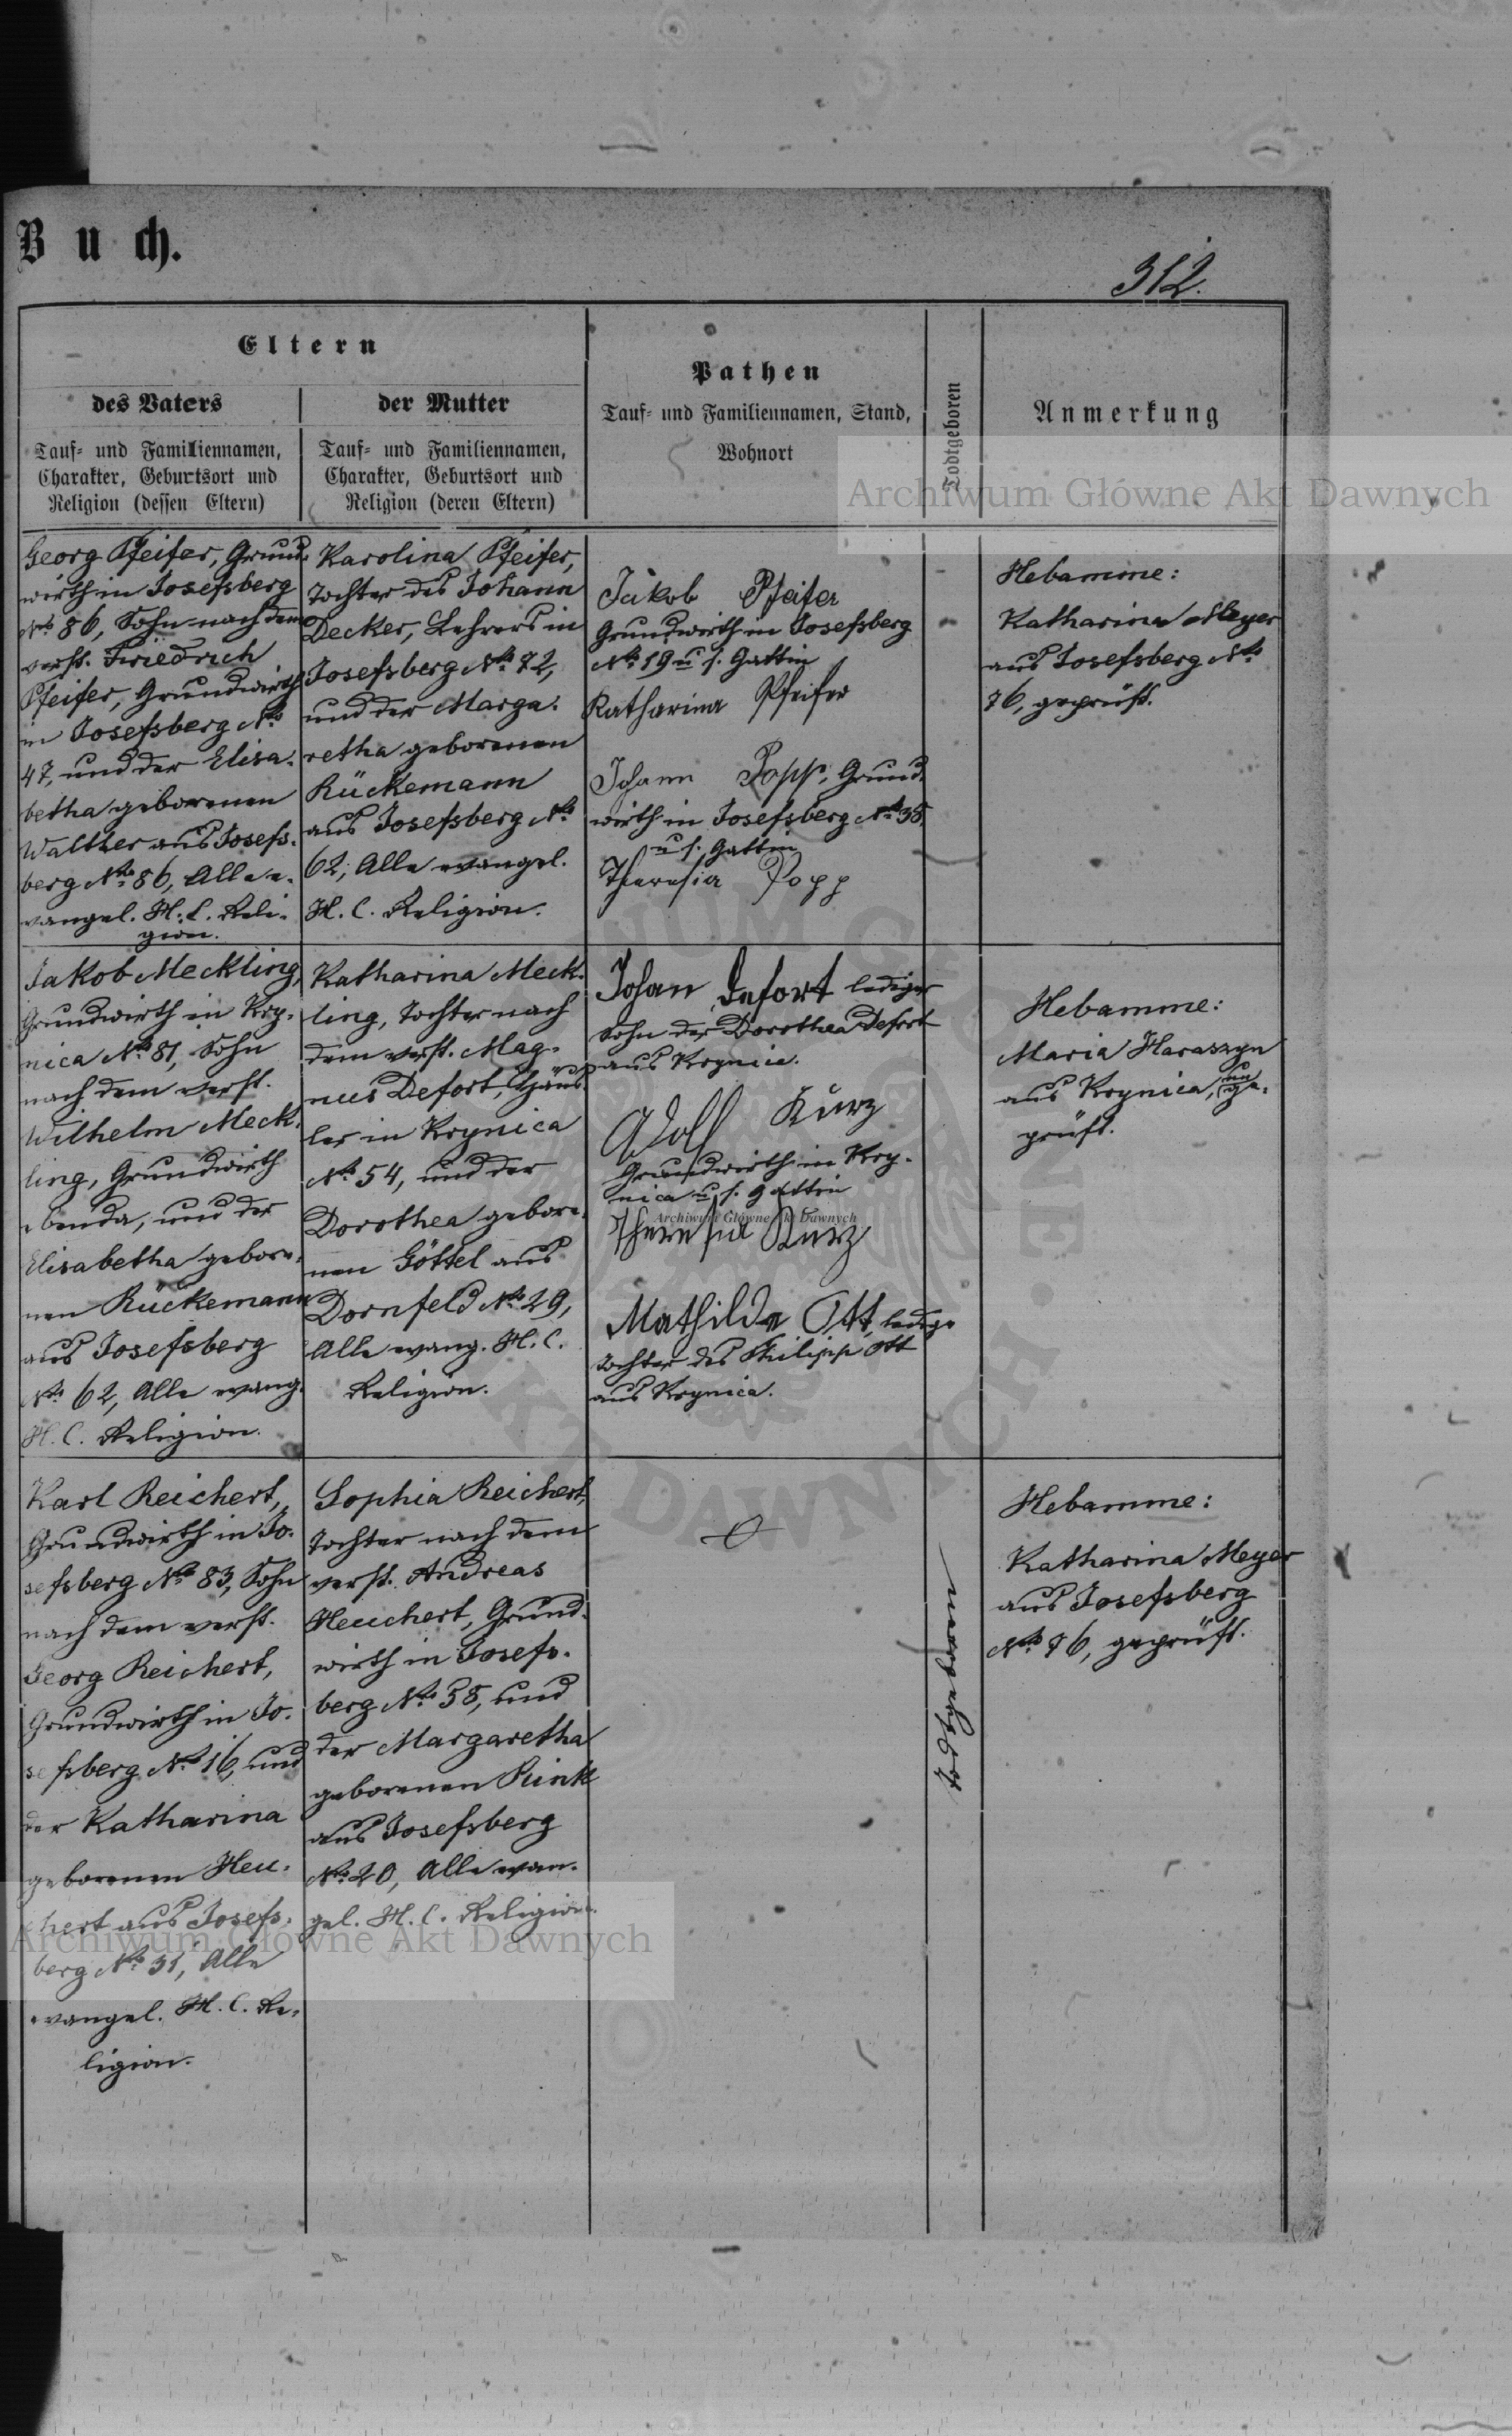 Buch.
312.
Eltern
des Vaters
Tauf- und Familiennamen,
Charakter, Geburtsort und
Religion (dessen Eltern)
der Mutter
Tauf- und Familiennamen,
Charakter, Geburtsort und
Religion (deren Eltern)
Pathen
Tauf- und Familiennamen, Stand,
Wohnort
Todtgeboren
Anmerkung
Archiwum Główne Akt Dawnych
Georg Pfeifer, Grund-
wirth in Josefsberg
No 86, Sohn nach dem
verst. Friedrich
Pfeifer, Grundwirth
in Josefsberg No
47, und der Elisa-
betha geborenen
Walther aus Josefs-
berg No 86, Alle e-
vangel. H. C. Reli-
gion.
Karolina Pfeifer,
Tochter des Johann
Decker, Lehrers in
Josefsberg No 72,
und der Marga-
retha geborenen
Rückemann
aus Josefsberg No
62, Alle evangel.
H. C. Religion.
Jakob Pfeifer
Grundwirth in Josefsberg
No 19 u s. Gattin
Katharina Pfeifer
Johann Popp, Grund-
wirth in Josefsberg No 38,
u s. Gattin
Theresia Popp
Hebamme:
Katharina Meyer
aus Josefsberg No
76, geprüft.
Jakob Meckling,
Grundwirth in Kry-
nica No 81, Sohn
nach dem verst.
Wilhelm Meck-
ling, Grundwirth
ebenda, und der
Elisabetha gebore-
nen Rückemann
aus Josefsberg
No 62, Alle evang.
H. C. Religion.
Katharina Meck-
ling, Tochter nach
dem verst. Mag-
nus Defort, Häus-
ler in Krynica
No 54, und der
Dorothea gebore-
nen Göttel aus
Dornfeld No 29,
Alle evang. H. C.
Religion.
Johan Defort lediger
Sohn der Dorothea Defort
aus Krynica.
Adolf Kurz
Grundwirth in Kry-
nica u s. Gattin
Archiwum Główne Akt Dawnych
Theresia Kurz
Mathilde Ott, ledige
Tochter des Philipp Ott
aus Krynica.
Hebamme:
Maria Haraszyn
aus Krynica, unge-
prüft.
Karl Reichert,
Grundwirth in Jo-
sefsberg No 83, Sohn
nach dem verst.
Georg Reichert,
Grundwirth in Jo-
sefsberg No 16, und
der Katharina
geborenen Heu-
chert aus Josefs-
berg No 31, Alle
evangel. H. C. Re-
ligion.
Sophia Reichert,
Tochter nach dem
verst. Andreas
Heuchert, Grund-
wirth in Josefs-
berg No 58, und
der Margaretha
geborenen Rink
aus Josefsberg
No 20, Alle evan-
gel. H. C. Religion.
Todtgeboren
Hebamme:
Katharina Meyer
aus Josefsberg
No 76, geprüft.
Archiwum Główne Akt Dawnych